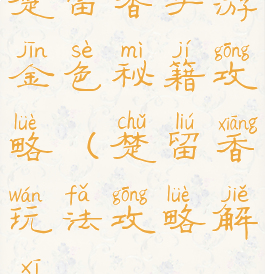 楚留香手游
jīn sè mì jí gōng
金色秘籍攻
lüè chǔ liú xiāng
略（楚留香
wán fǎ gōng lüè jiě
玩法攻略解
xī